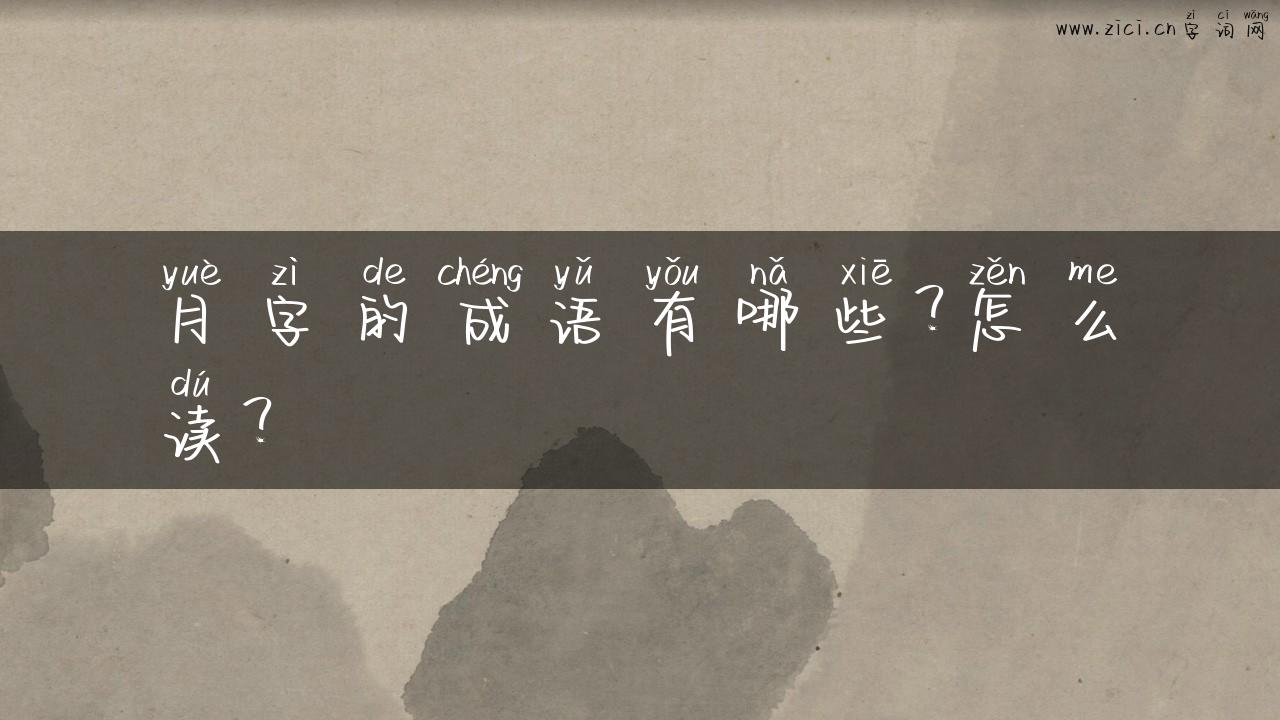 zì cí wǎng
www.zici.cn字词网
yuè zì de chéng yǔ yǒu nǎ xiē zěn me
月字的成语有哪些?怎么
dú
读?